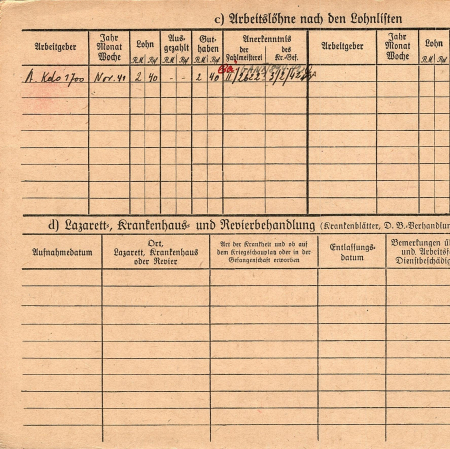 c) Arbeitslöhne nach den Lohnlisten
Arbeitgeber
Jahr
Monat
Woche
Lohn
R.M Rpf
Aus-
gezahlt
R.M Rpf
Gut-
haben
R.M Rpf
Anerkenntnis
der
Zahlmeisterei
des
Kr.-Gef.
Arbeitgeber
Jahr
Monat
Woche
Lohn
R.M Rpf
A. Kdo 1700 Nov. 40 2 40 - - 2 40
d) Lazarett-, Krankenhaus- und Revierbehandlung (Krankenblätter, D. B.-Verhandlun
Aufnahmedatum
Ort,
Lazarett, Krankenhaus
oder Revier
Art der Krankheit und ob auf
dem Kriegsschauplatz oder in der
Gefangenschaft erworben
Entlassungs-
datum
Bemerkungen üb
und Arbeitsf
Dienstbeschädig